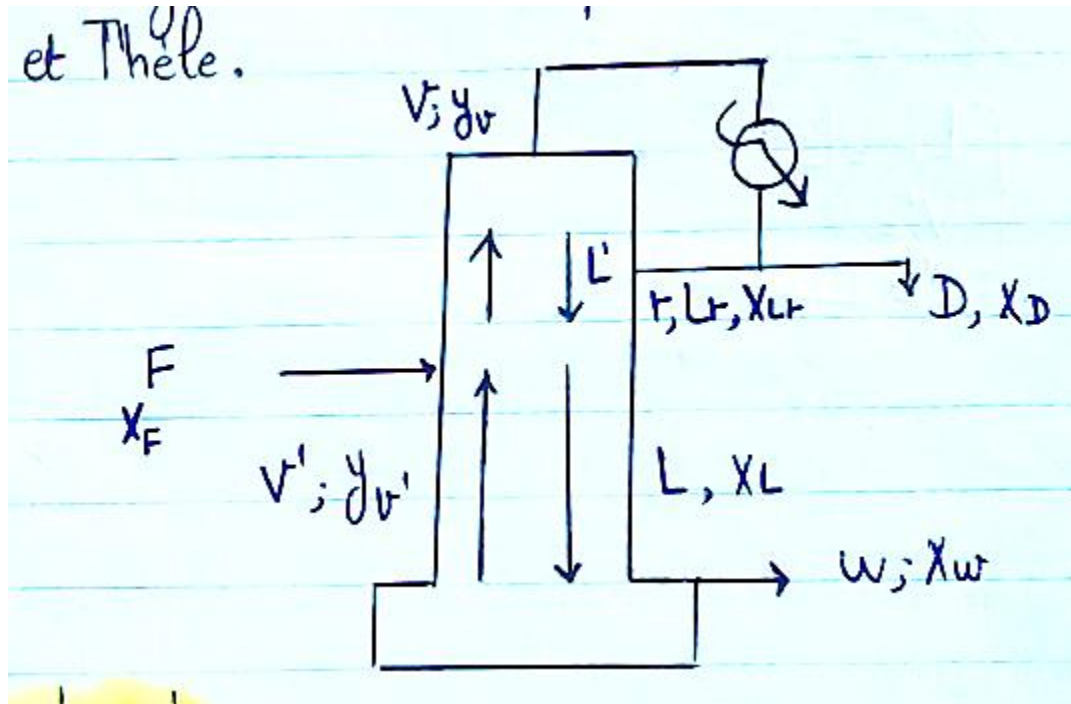 et Thèle.
V; yv
L'
r, Lr, XLr
D, XD
F
XF
V'; yv'
L, XL
w; Xw